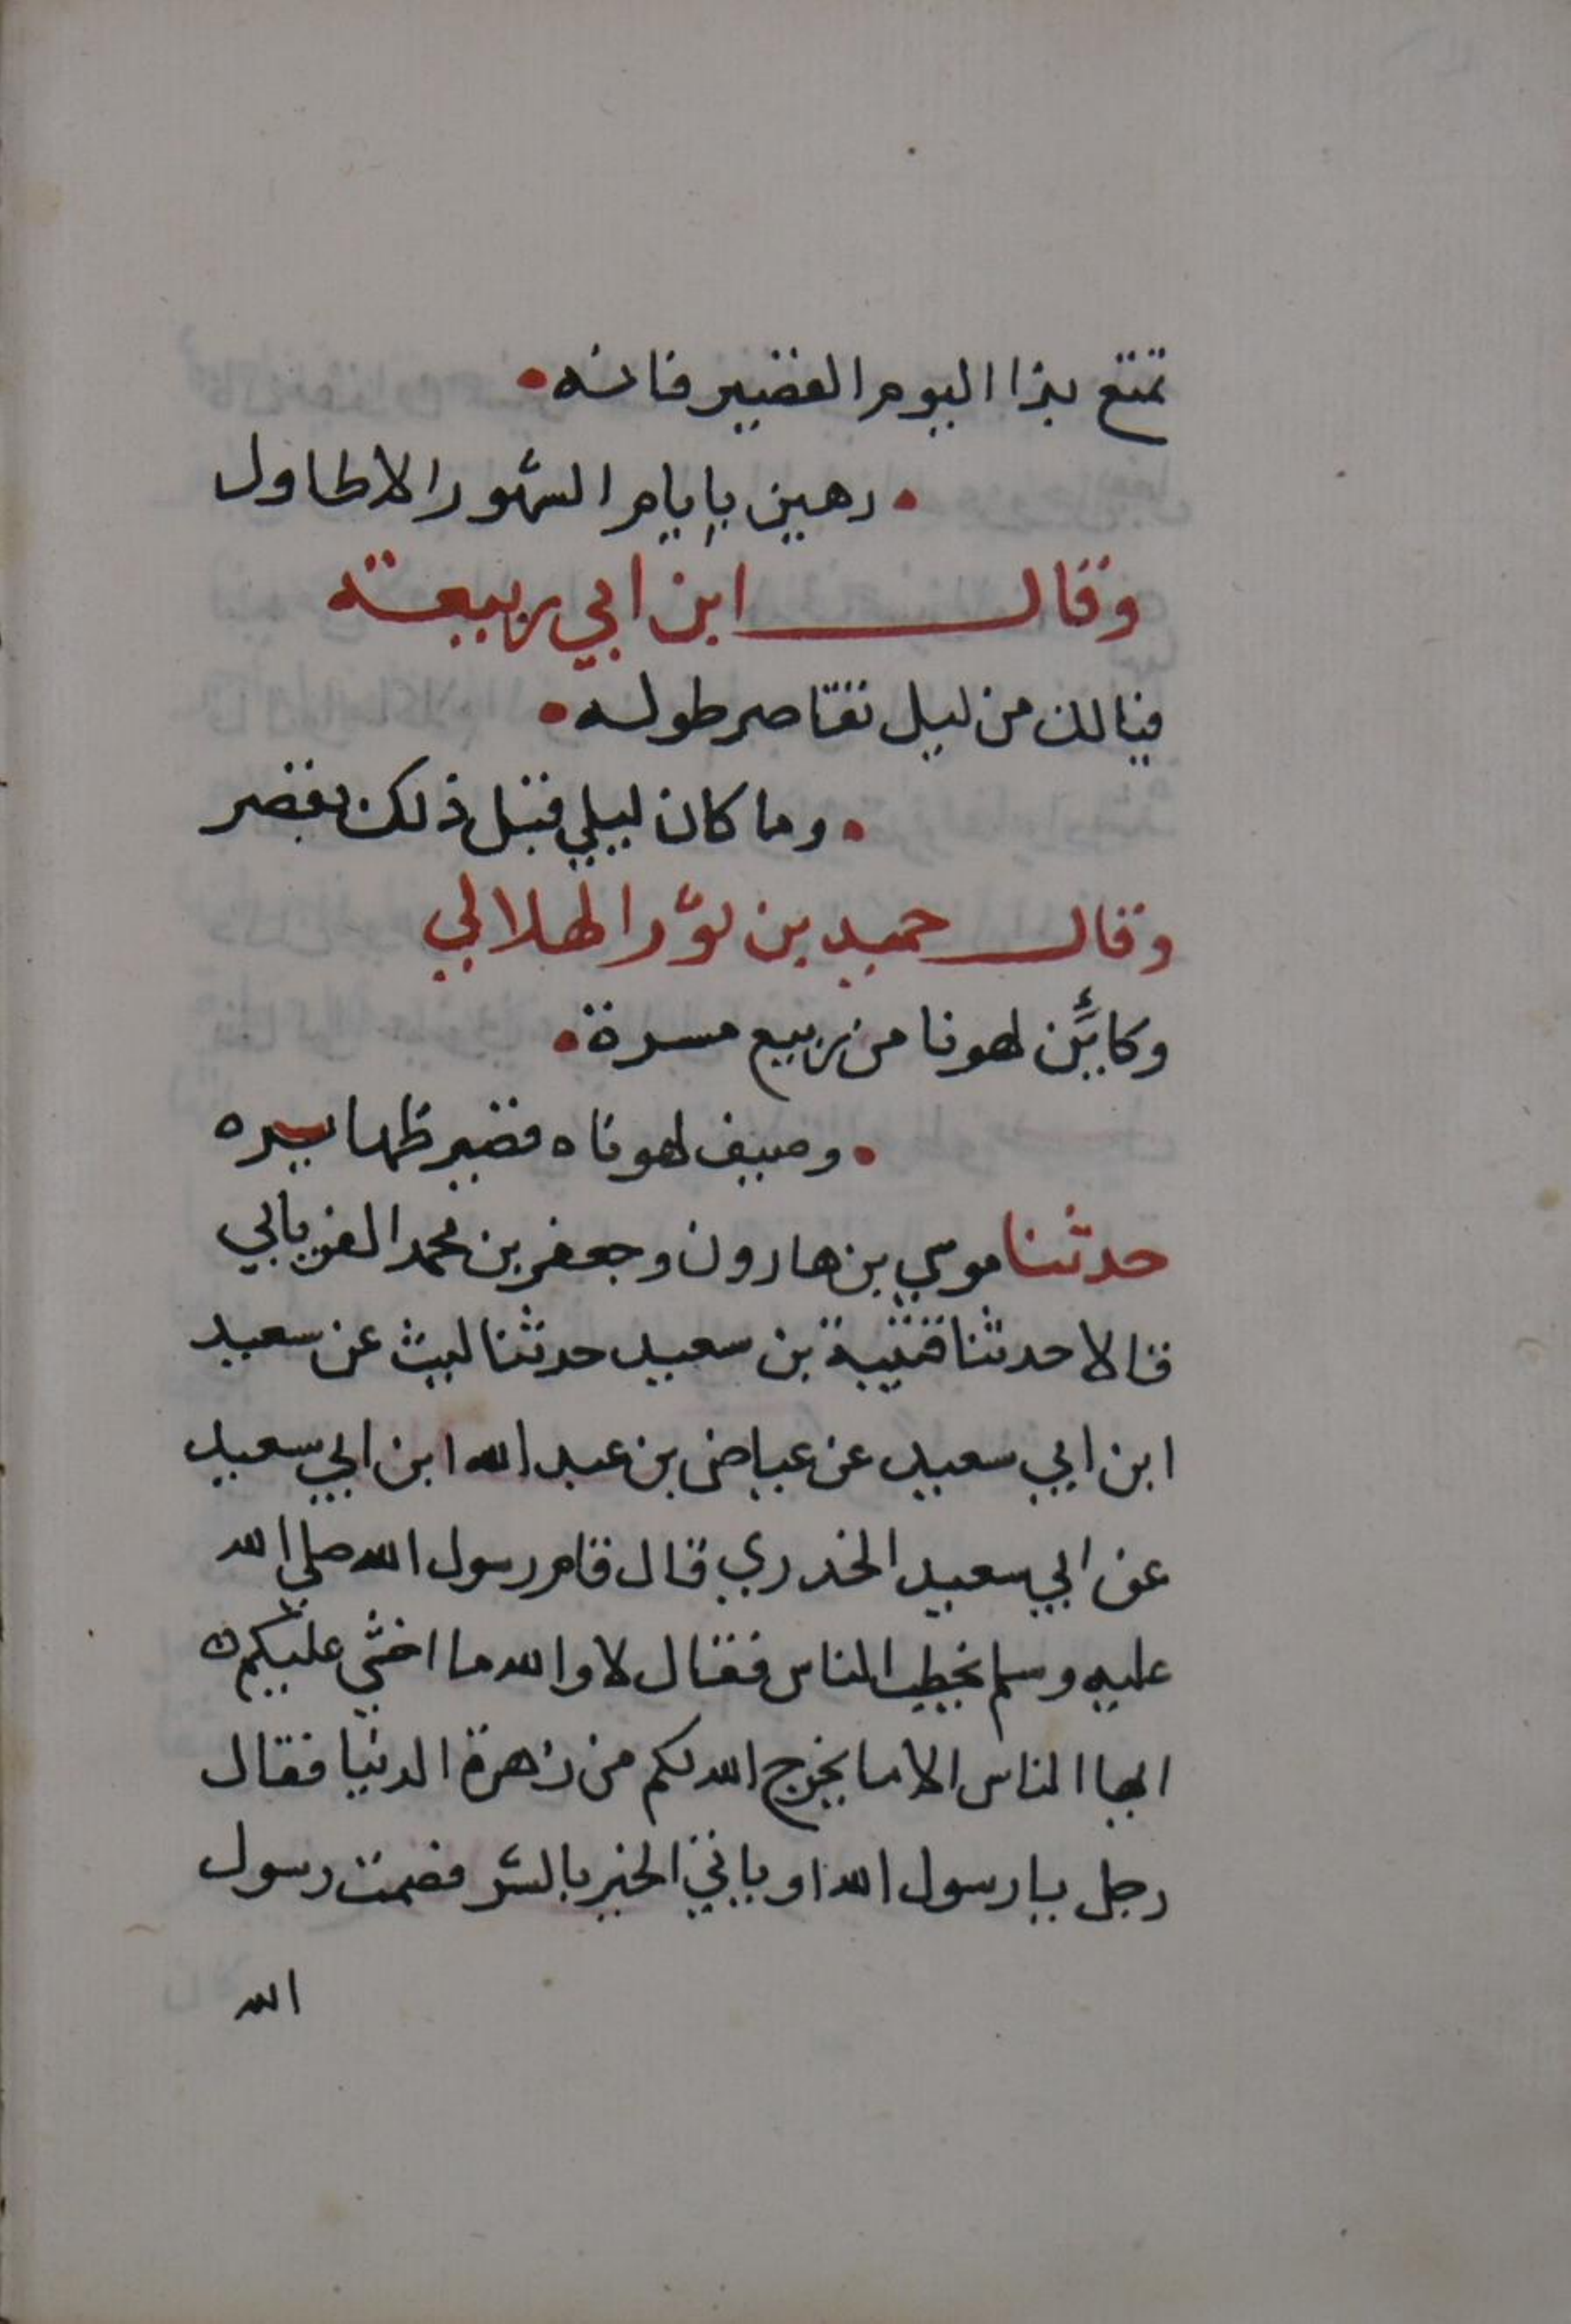 تمتع بذا اليوم القصير فانه
رهين بايام الشهور الاطاول
وقال ابن ابي ربيعة
فيالك من ليل تقاصر طوله
وما كان ليلي قبل ذلك يقصر
وقال حميد بن ثور الهلالي
وكائن لهونا من ربيع مسرة
وصيف لهوناه قصير ظهايره
حدثنا موسي بن هارون وجعفر بن محمد الفريابي
قالا حدثنا قتيبة بن سعيد حدثنا ليث عن سعيد
ابن ابي سعيد عن عياض بن عبد الله ابن ابي سعيد
عن ابي سعيد الخدري قال قام رسول الله صلي الله
عليه وسلم يخطب الناس فقال لا والله ما اخشي عليكم
ايها الناس الا ما يخرج الله لكم من زهرة الدنيا فقال
رجل يا رسول الله او ياتي الخير بالشر فصمت رسول
الله